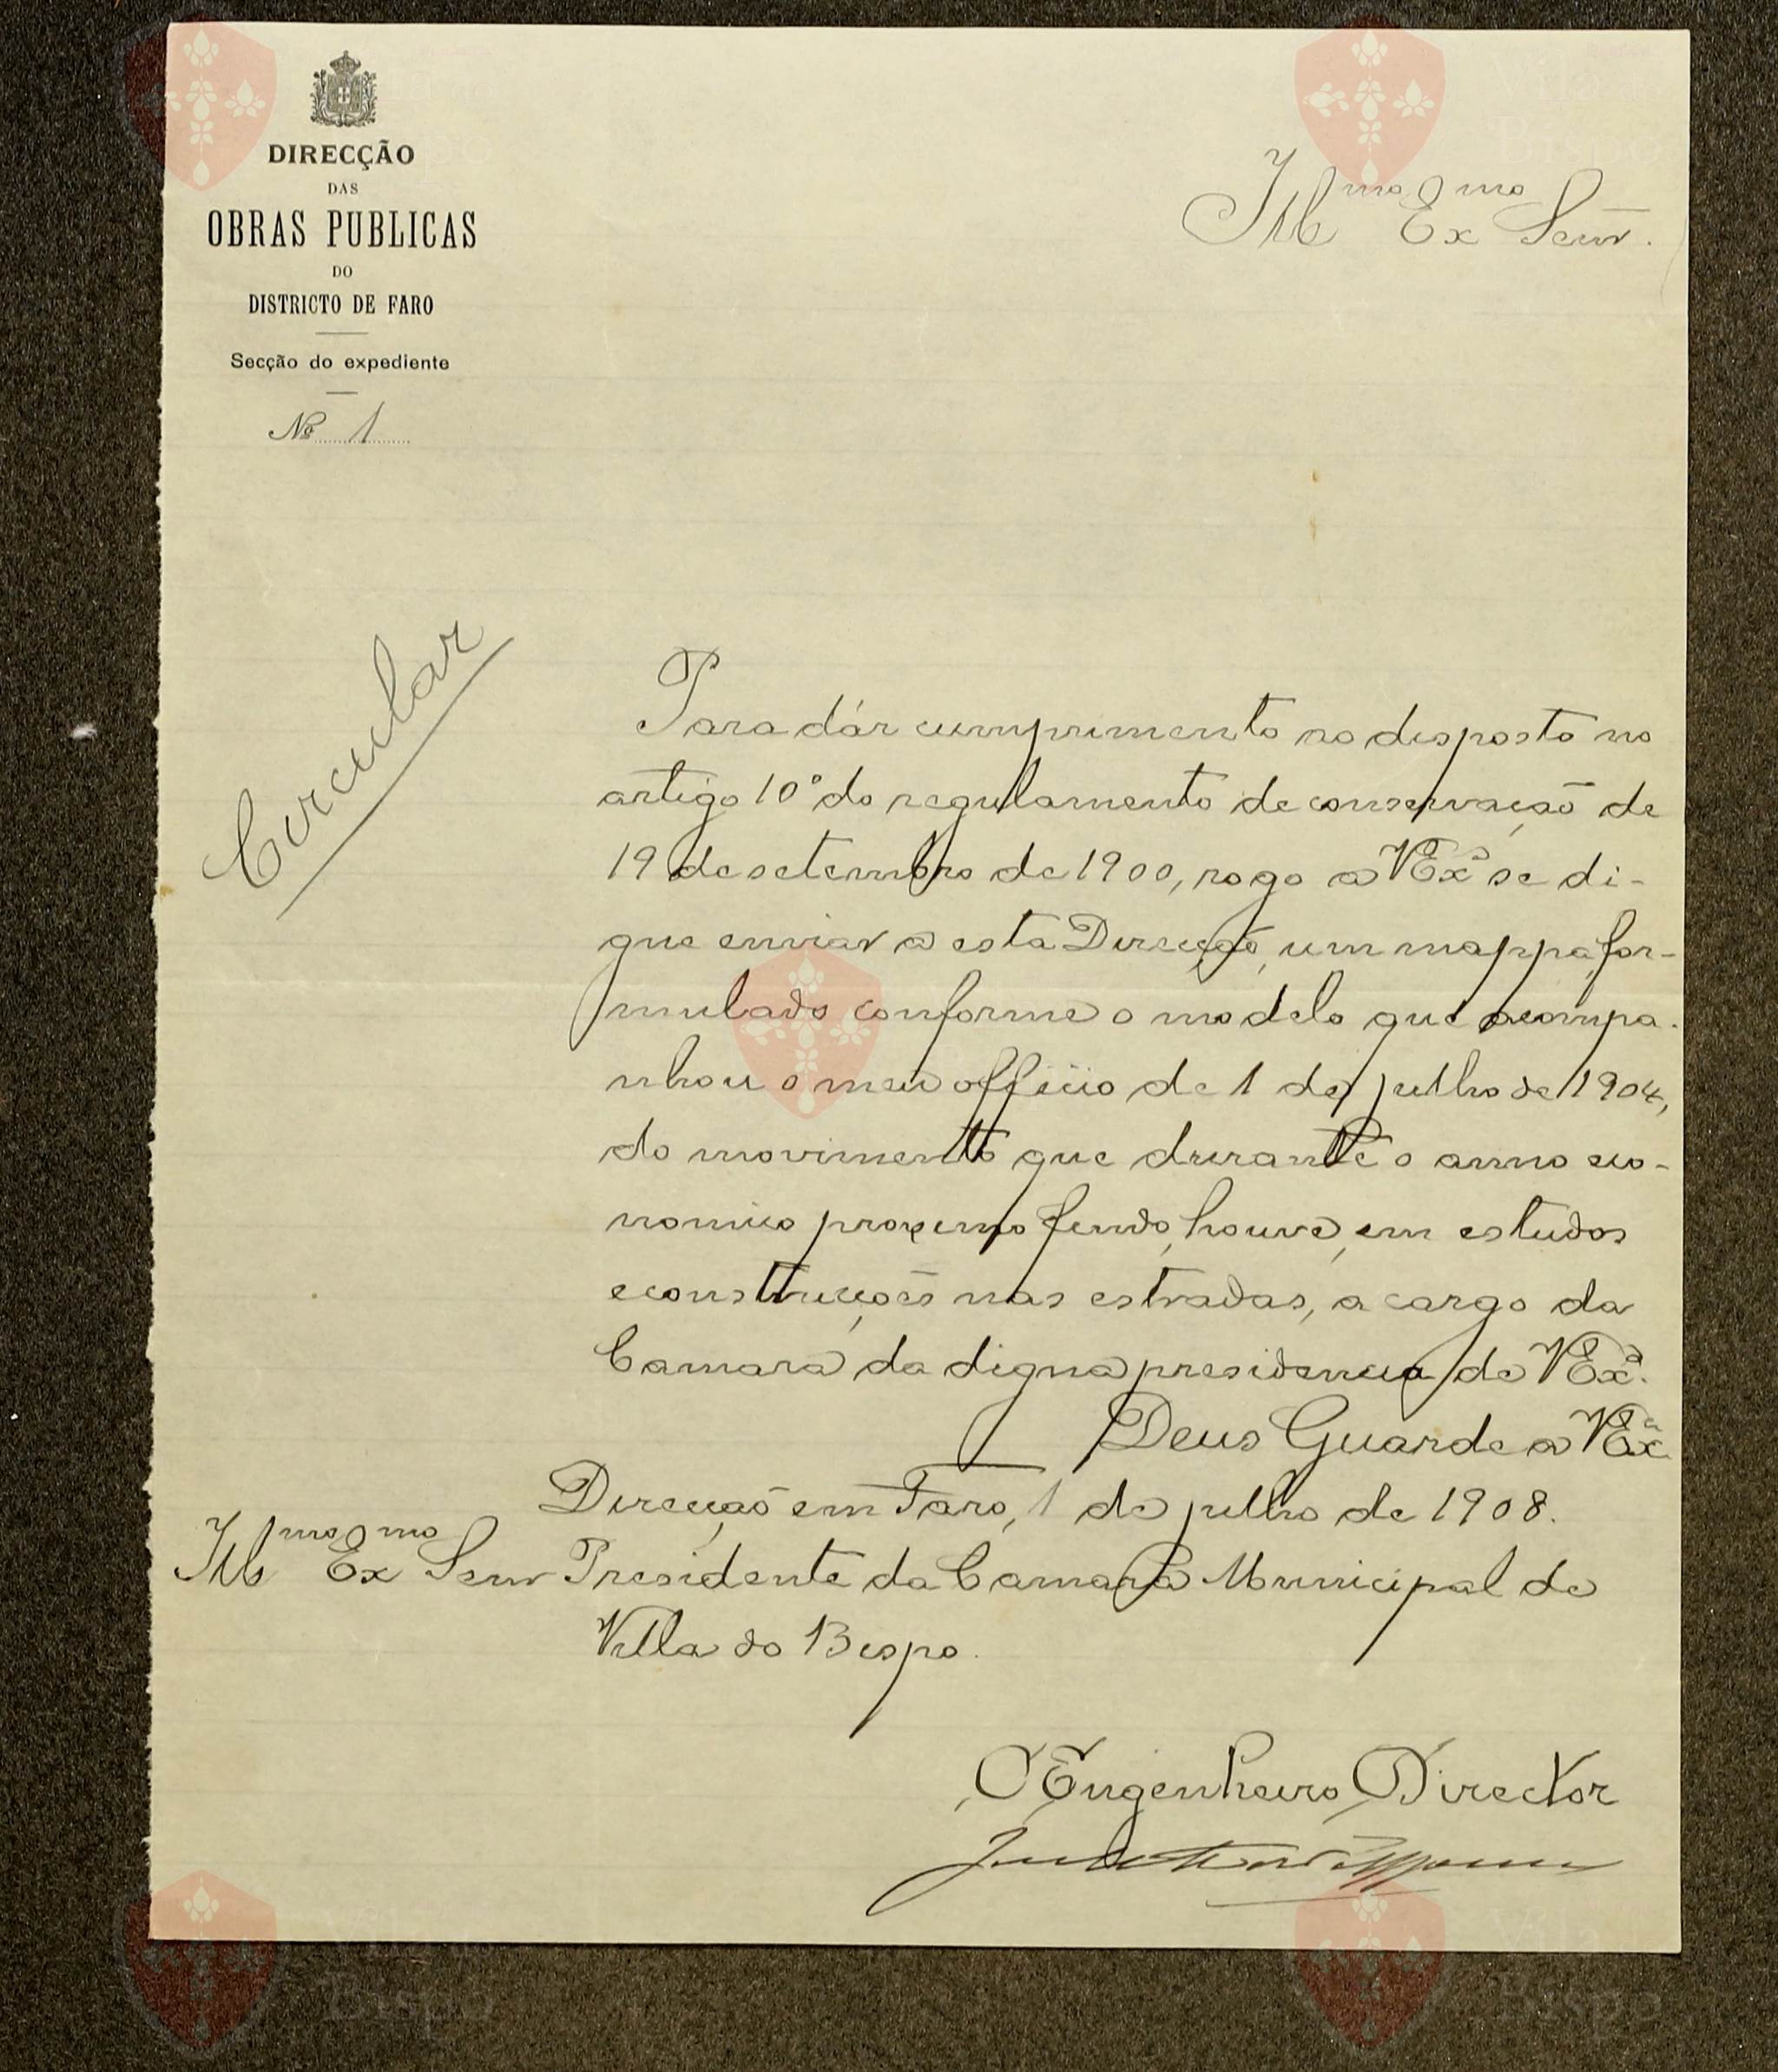 DIRECÇÃO
DAS
OBRAS PUBLICAS
DO
DISTRICTO DE FARO
Secção do expediente
Nº 1
Illmo Exmo Senr.
Circular
Para dár cumprimento ao disposto no
artigo 10º do regulamento de conservação de
19 de setembro de 1900, rogo a VExª se di-
gne enviar a esta Direcção, um mappa, for-
mulado conforme o modelo que acompa-
nhou o meu officio de 1 de julho de 1904,
do movimento que durante o anno eco-
nomico proximo findo, houve, em estudos
e construcções nas estradas, a cargo da
Camara da digna presidencia de VExª.
Deus Guarde a VExª
Direcção em Faro, 1 de julho de 1908.
Illmo Exmo Senr Presidente da Camara Municipal de
Villa do Bispo.
O Engenheiro Director
Vila do
Bispo
Vila do
Bispo